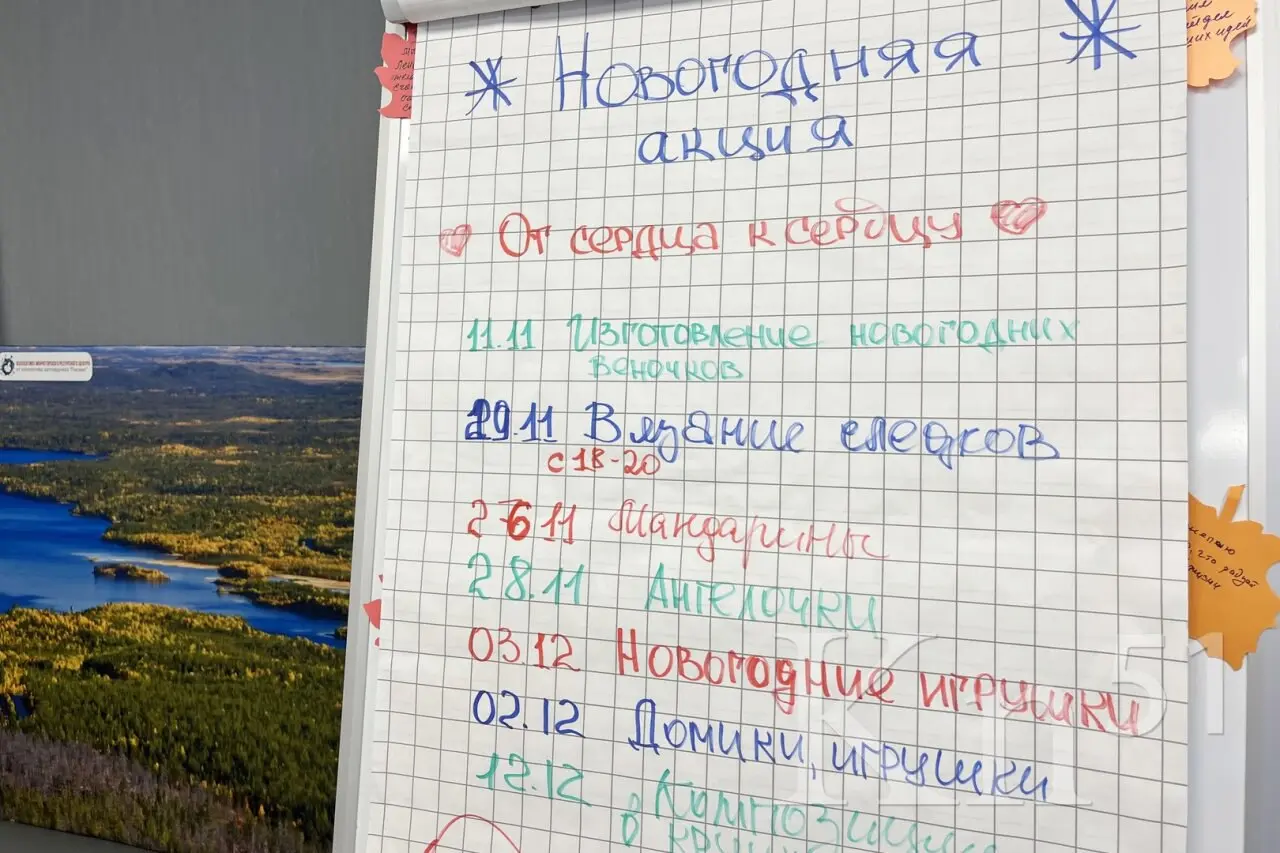 Новогодняя
акция
От сердца к сердцу
11.11 Изготовление новогодних
веночков
29.11 Вязание следков
с 18-20
26 11 Мандарины
28.11 Ангелочки
03.12 Новогодние игрушки
02.12 Домики, игрушки
12.12
КП 51